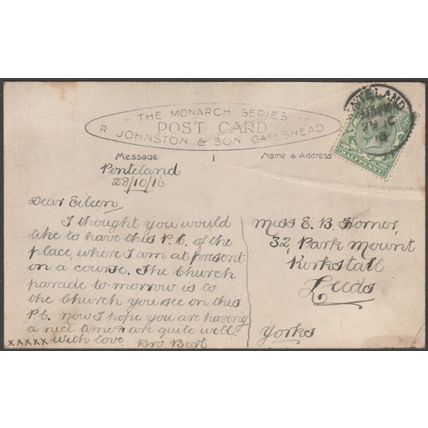 THE MONARCH SERIES
POST CARD
R. JOHNSTON & SON GATESHEAD
Message
Name & Address
Ponteland
28/10/16
Dear Eileen
I thought you would
like to have this P.C. of the
place, where I am at present
on a course. The Church
parade to-morrow is to
the Church you see on this
P.C. now I hope you are having
a nice time are quite well.
xxxxx with love Bro. Bert
Miss E. B. Horner,
32, Park Mount
Kirkstall
Leeds
Yorks
PONTELAND